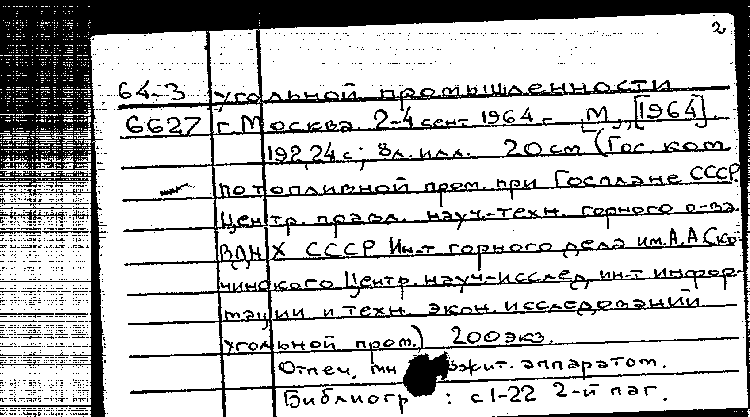 2
64-3 угольной промышленности
6627 г. Москва. 2-4 сент 1964 г. М., [1964].
192,24 с; 8 л. илл. 20 см (Гос. ком
по топливной пром. при Госплане СССР.
Центр. правл. науч.-техн. горного о-ва.
ВДНХ СССР Ин-т горного дела им. А.А Ско-
чинского Центр. науч-исслед. ин-т инфор-
мации и техн. экон. исследований
угольной пром.) 200 экз.
Отпеч. мн аппаратом.
Библиогр : с 1-22 2-й паг.